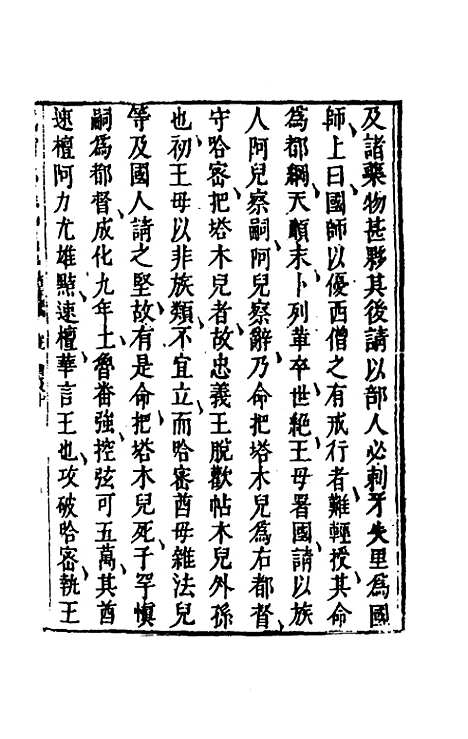 及諸藥物甚夥其後請以部人必剌牙失里爲國
師上曰國師以優西僧之有戒行者難輕授其命
爲都綱天順末卜列革卒世絶王母署國請以族
人阿兒察嗣阿兒察辭乃命把塔木兒爲右都督
守哈密把塔木兒者故忠義王脫歡帖木兒外孫
也初王母以非族類不宜立而哈密酋毋雜法兒
等及國人請之堅故有是命把塔木兒死子罕愼
嗣爲都督成化九年土魯番強控弦可五萬其酋
速檀阿力尤雄黠速檀華言王也攻破哈密執王